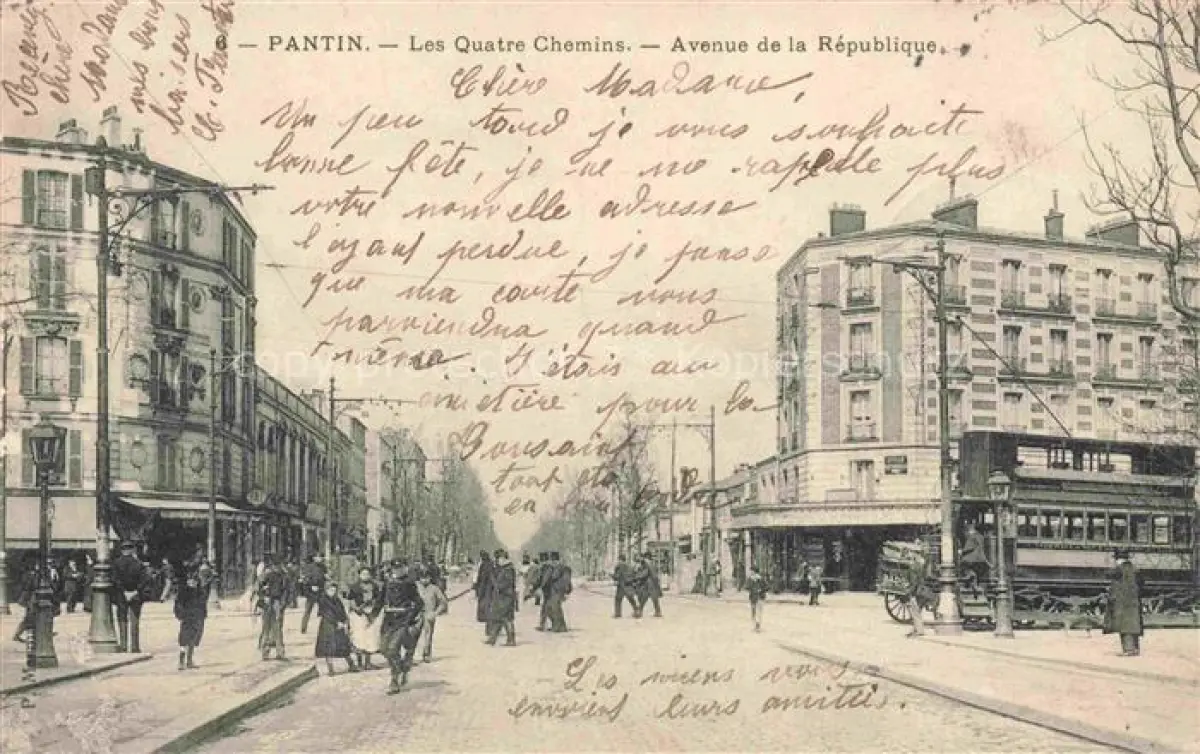 6 — PANTIN. — Les Quatre Chemins. — Avenue de la République.
Chère Madame,
Un peu tard je vous souhaite
bonne fête, je ne me rappelle plus
votre nouvelle adresse
l'ayant perdue, je pense
que ma carte vous
parviendra quand
même. J'étais au
cimetière pour la
Toussaint
tout
en
Les miens vous
envoient leurs amitiés.
Recevez
chère
madame
mes
baisers